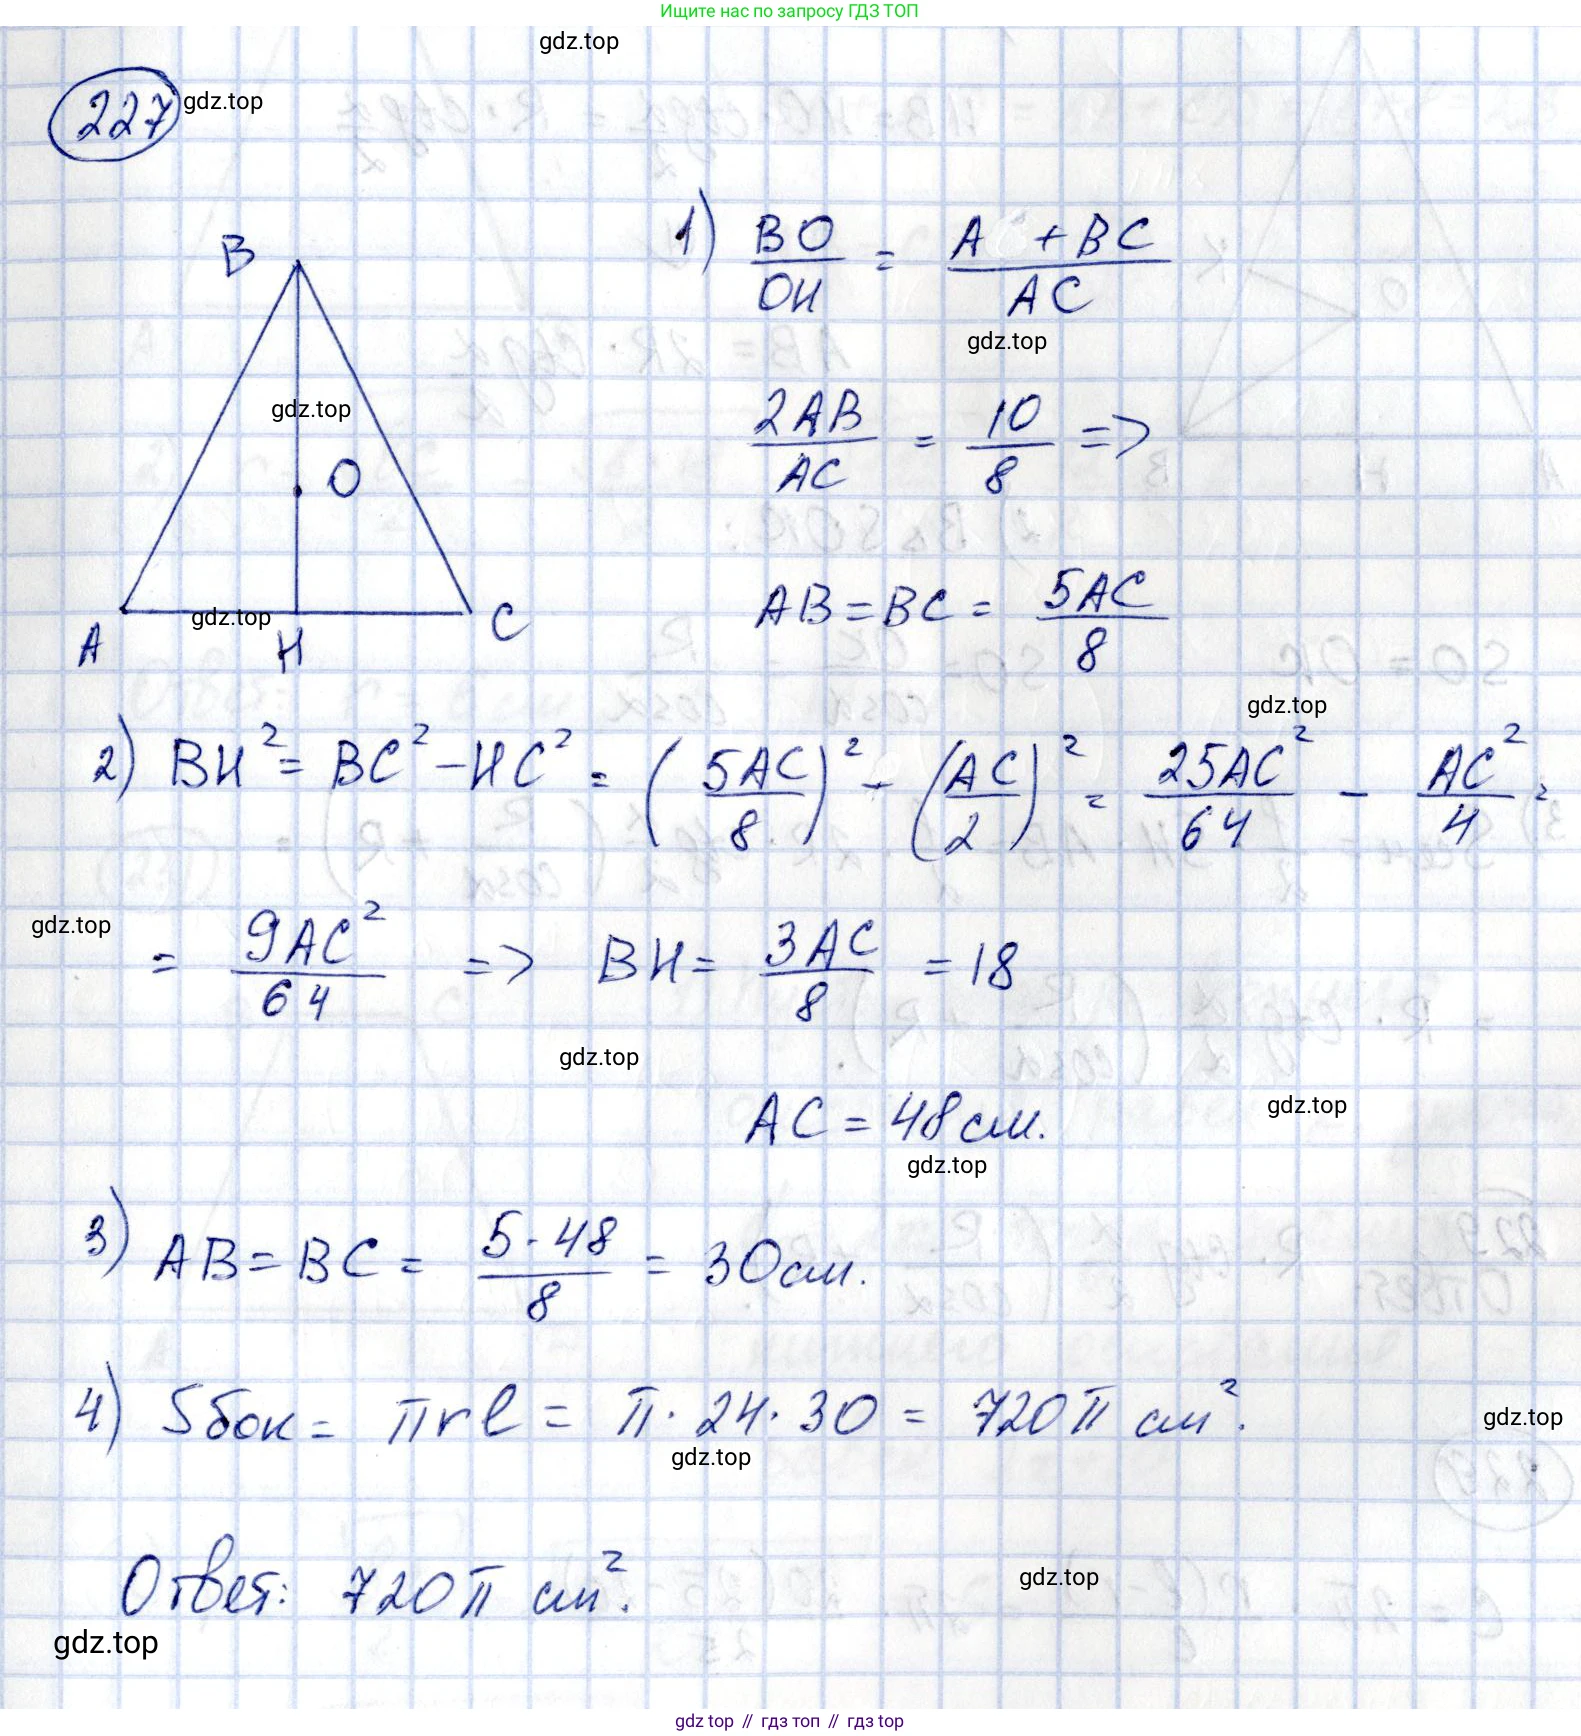 Ищите нас по запросу ГДЗ ТОП
gdz.top
227 gdz.top
1) BO/OH = A + BC/AC
gdz.top
B
2AB/AC = 10/8 =>
gdz.top
O
AB = BC = 5AC/8
gdz.top
A H C
gdz.top
2) BH² = BC² - HC² = (5AC/8)² - (AC/2)² = 25AC²/64 - AC²/4 =
gdz.top
= 9AC²/64 => BH = 3AC/8 = 18
gdz.top
AC = 48 см.
gdz.top
gdz.top
3) AB = BC = 5·48/8 = 30 см.
4) Sбок = πrl = π·24·30 = 720π см².
gdz.top
gdz.top
Ответ: 720π см².
gdz.top
gdz.top
gdz.top // гдз топ // гдз top